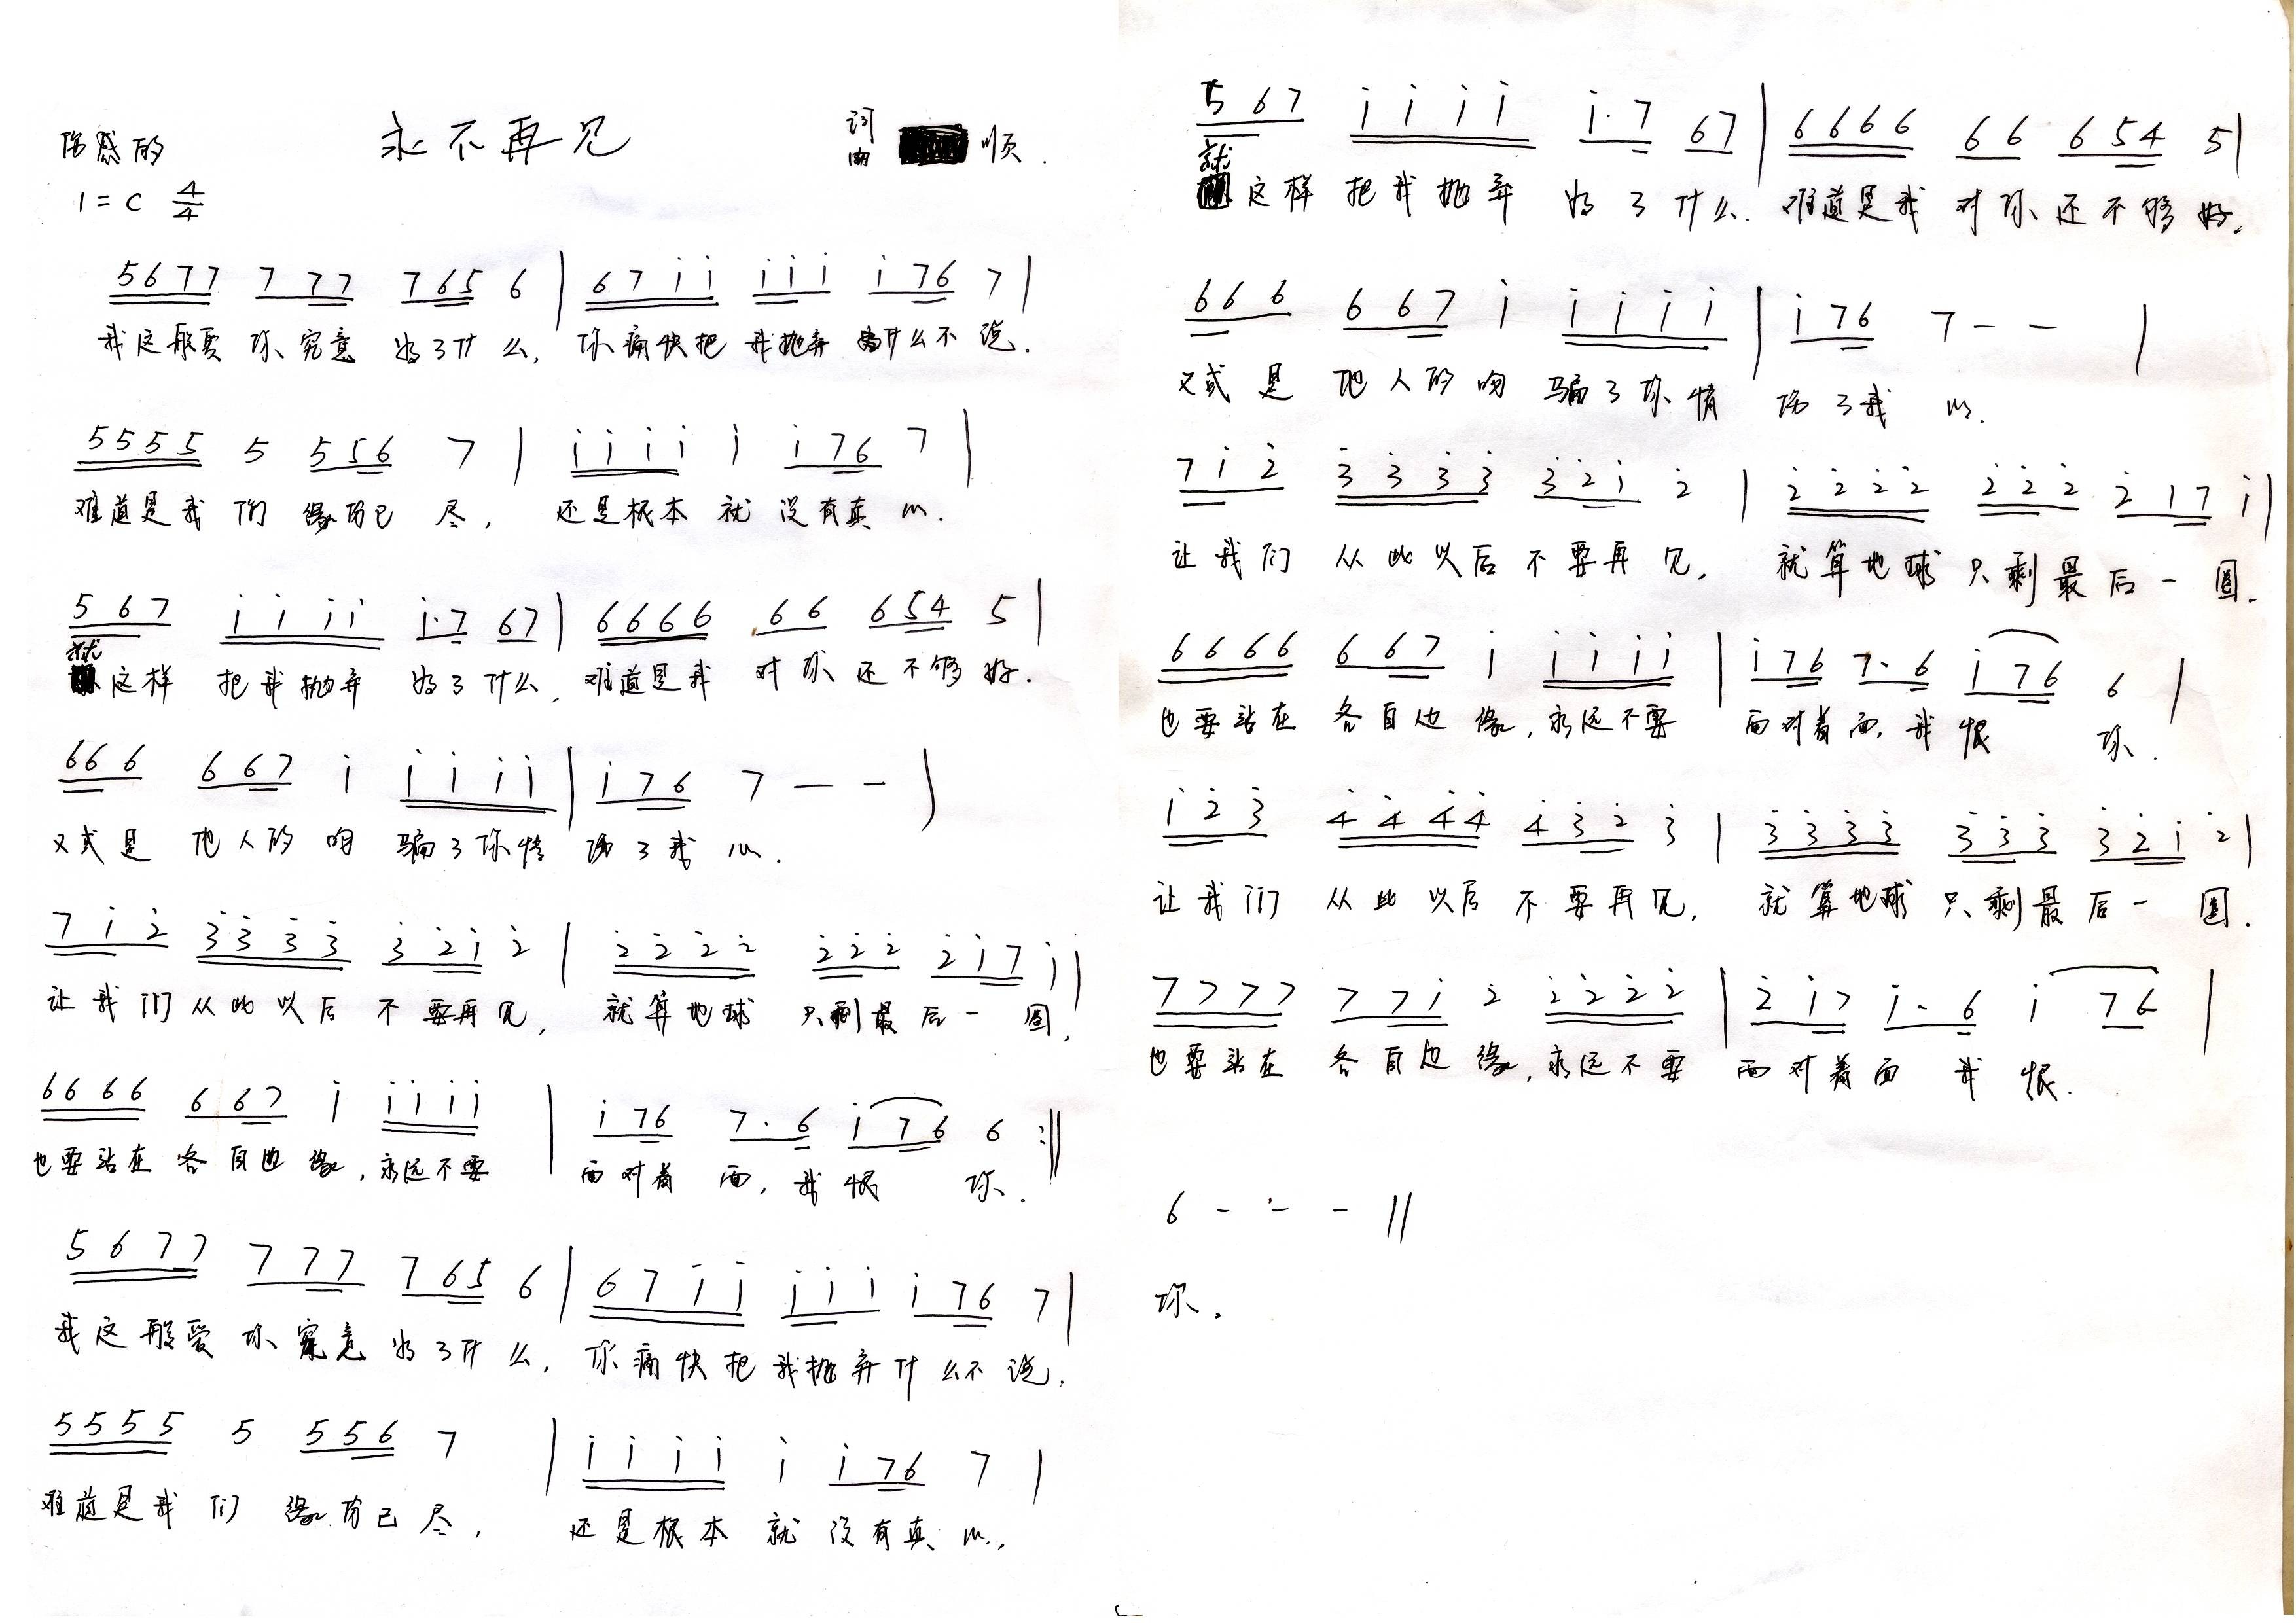 伤感的 永不再见 词曲 顺.
1=C 4/4
5677 777 765 6 | 67i̇i̇ i̇i̇i̇ i̇76 7 |
我这般爱 你究竟 为了什么, 你痛快把 我抛弃 为什么不说.
5555 5 556 7 | i̇i̇i̇i̇ i̇ i̇76 7 |
难道是我 们 缘份已 尽, 还是根本 就 没有真 心.
567 i̇i̇i̇i̇ i̇·7 67 | 6666 66 654 5 |
就这样 把我抛弃 为了什么, 难道是我 对你 还不够 好.
666 667 i̇ i̇i̇i̇i̇ | i̇76 7 — — )
又或是 他人的 吻 骗了你情 伤了我 心.
7i̇2̇ 3̇3̇3̇3̇ 3̇2̇i̇ 2̇ | 2̇2̇2̇2̇ 2̇2̇2̇ 2̇i̇7 i̇ |
让我们 从此以后 不要再见, 就算地球 只剩最后一 圈.
6666 667 i̇ i̇i̇i̇i̇ | i̇76 7·6 i̇76 6 :‖
也要站在 各自边 缘, 永远不要 面对着 面, 我 恨 你.
5677 777 765 6 | 67i̇i̇ i̇i̇i̇ i̇76 7 |
我这般爱 你究竟 为了什么, 你痛快把我抛弃什么不说.
5555 5 556 7 | i̇i̇i̇i̇ i̇ i̇76 7 |
难道是我 们 缘份已 尽, 还是根本 就 没有真 心.
567 i̇i̇i̇i̇ i̇·7 67 | 6666 66 654 5 |
就这样 把我抛弃 为了什么. 难道是我 对你还不够 好.
666 667 i̇ i̇i̇i̇i̇ | i̇76 7 — — |
又或是 他人的吻 骗了你情 伤了我 心.
7i̇2̇ 3̇3̇3̇3̇ 3̇2̇i̇ 2̇ | 2̇2̇2̇2̇ 2̇2̇2̇ 2̇17 i̇ |
让我们 从此以后 不要再 见, 就算地球 只剩最后一 圈.
6666 667 i̇ i̇i̇i̇i̇ | i̇76 7·6 i̇76 6 |
也要站在 各自边 缘, 永远不要 面对着面, 我恨 你.
i̇2̇3̇ 4̇4̇4̇4̇ 4̇3̇2̇ 3̇ | 3̇3̇3̇3̇ 3̇3̇3̇ 3̇2̇i̇ 2̇ |
让我们 从此以后 不要再见, 就算地球 只剩最后一 圈.
7777 77i̇ 2̇ 2̇2̇2̇2̇ | 2̇i̇7 i̇·6 i̇ 76 |
也要站在 各自边 缘, 永远不要 面对着面 我 恨.
6 - - - ‖
你.